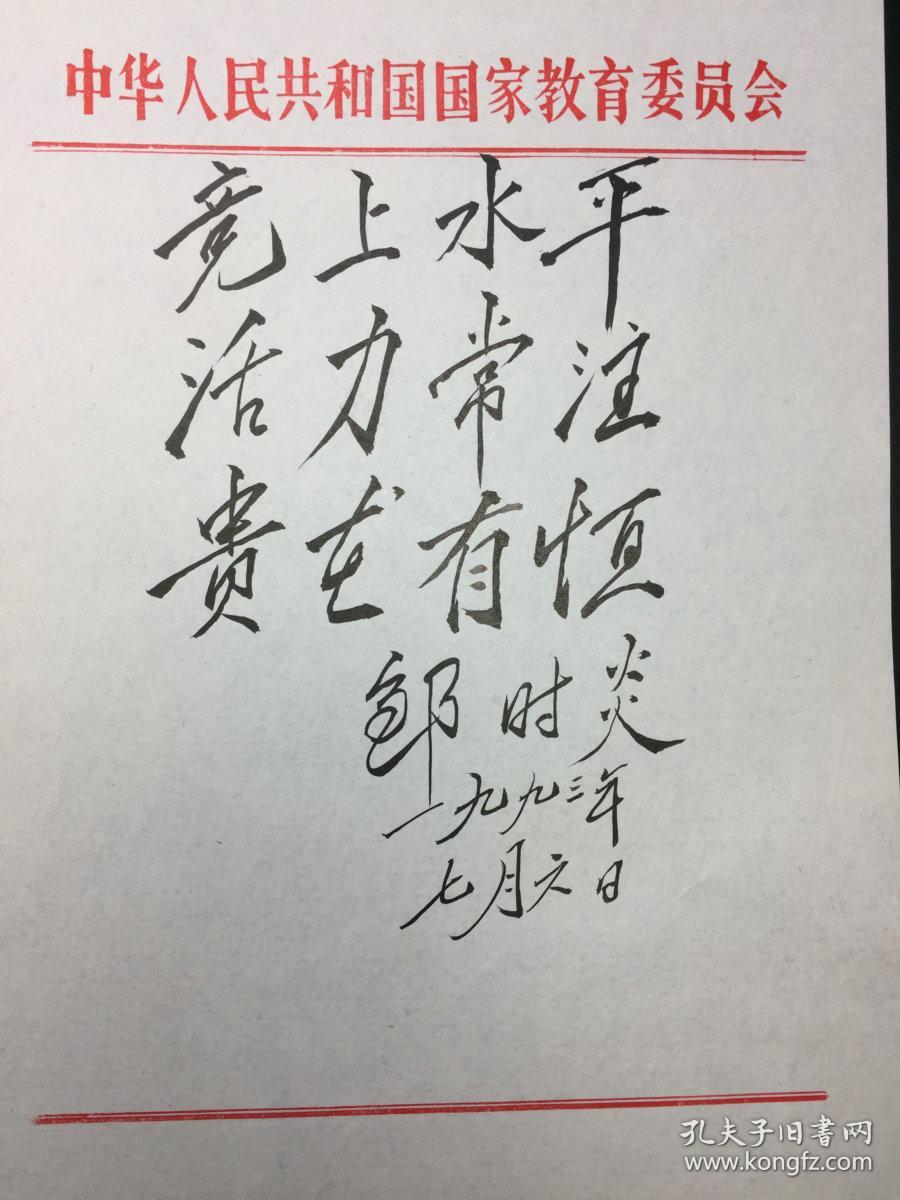 中华人民共和国国家教育委员会
竞上水平
活力常注
贵在有恒
邹时炎
一九九三年
七月六日
孔夫子旧書网
www.kongfz.com